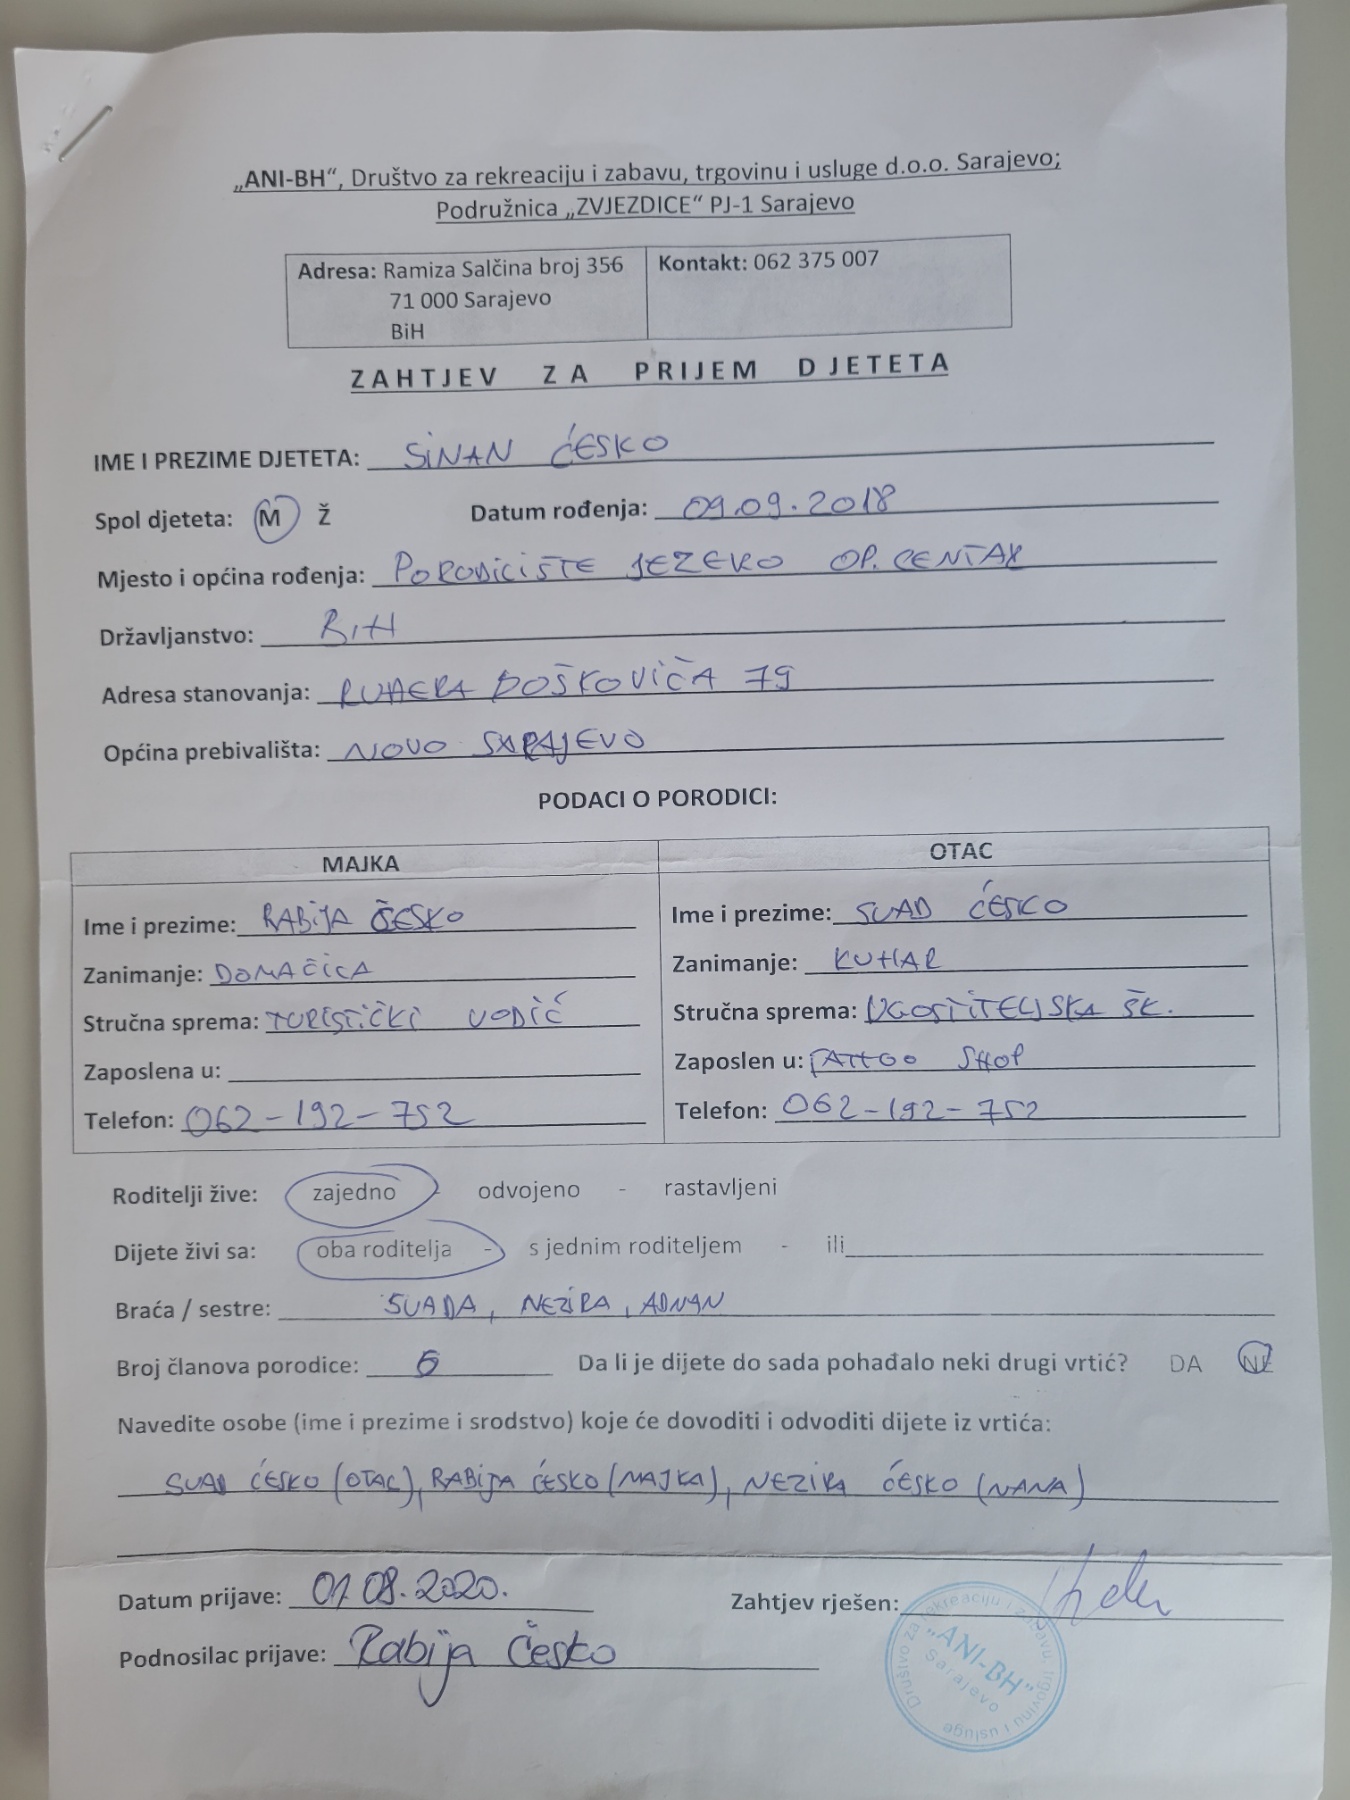 „ANI-BH“, Društvo za rekreaciju i zabavu, trgovinu i usluge d.o.o. Sarajevo;
Podružnica „ZVJEZDICE“ PJ-1 Sarajevo
Adresa: Ramiza Salčina broj 356
71 000 Sarajevo
BiH
Kontakt: 062 375 007
ZAHTJEV ZA PRIJEM DJETETA
IME I PREZIME DJETETA: SINAN ĆESKO
Spol djeteta: M Ž Datum rođenja: 09.09.2018
Mjesto i općina rođenja: PORODICIŠTE JEZERO OP. CENTAR
Državljanstvo: BIH
Adresa stanovanja: BOŠKOVIĆA 79
Općina prebivališta: NOVO SARAJEVO
PODACI O PORODICI:
MAJKA
Ime i prezime: RABIJA ČESKO
Zanimanje: DOMAĆICA
Stručna sprema: TURISTIČKI VODIČ
Zaposlena u:
Telefon: 062-192-752
OTAC
Ime i prezime: SUAD ĆESKO
Zanimanje: KUHAR
Stručna sprema: UGOSTITELJSKA ŠK.
Zaposlen u: TATTOO SHOP
Telefon: 062-192-752
Roditelji žive: zajedno - odvojeno - rastavljeni
Dijete živi sa: oba roditelja - s jednim roditeljem - ili
Braća / sestre: SUADA, NEZIRA, ADNAN
Broj članova porodice: 6 Da li je dijete do sada pohađalo neki drugi vrtić? DA NE
Navedite osobe (ime i prezime i srodstvo) koje će dovoditi i odvoditi dijete iz vrtića:
SUAD ĆESKO (OTAC), RABIJA ĆESKO (MAJKA), NEZIRA ĆESKO (NANA)
Datum prijave: 01.08.2020. Zahtjev rješen:
Podnosilac prijave: Rabija Česko
Društvo za rekreaciju i zabavu, trgovinu i usluge
„ANI-BH“
Sarajevo